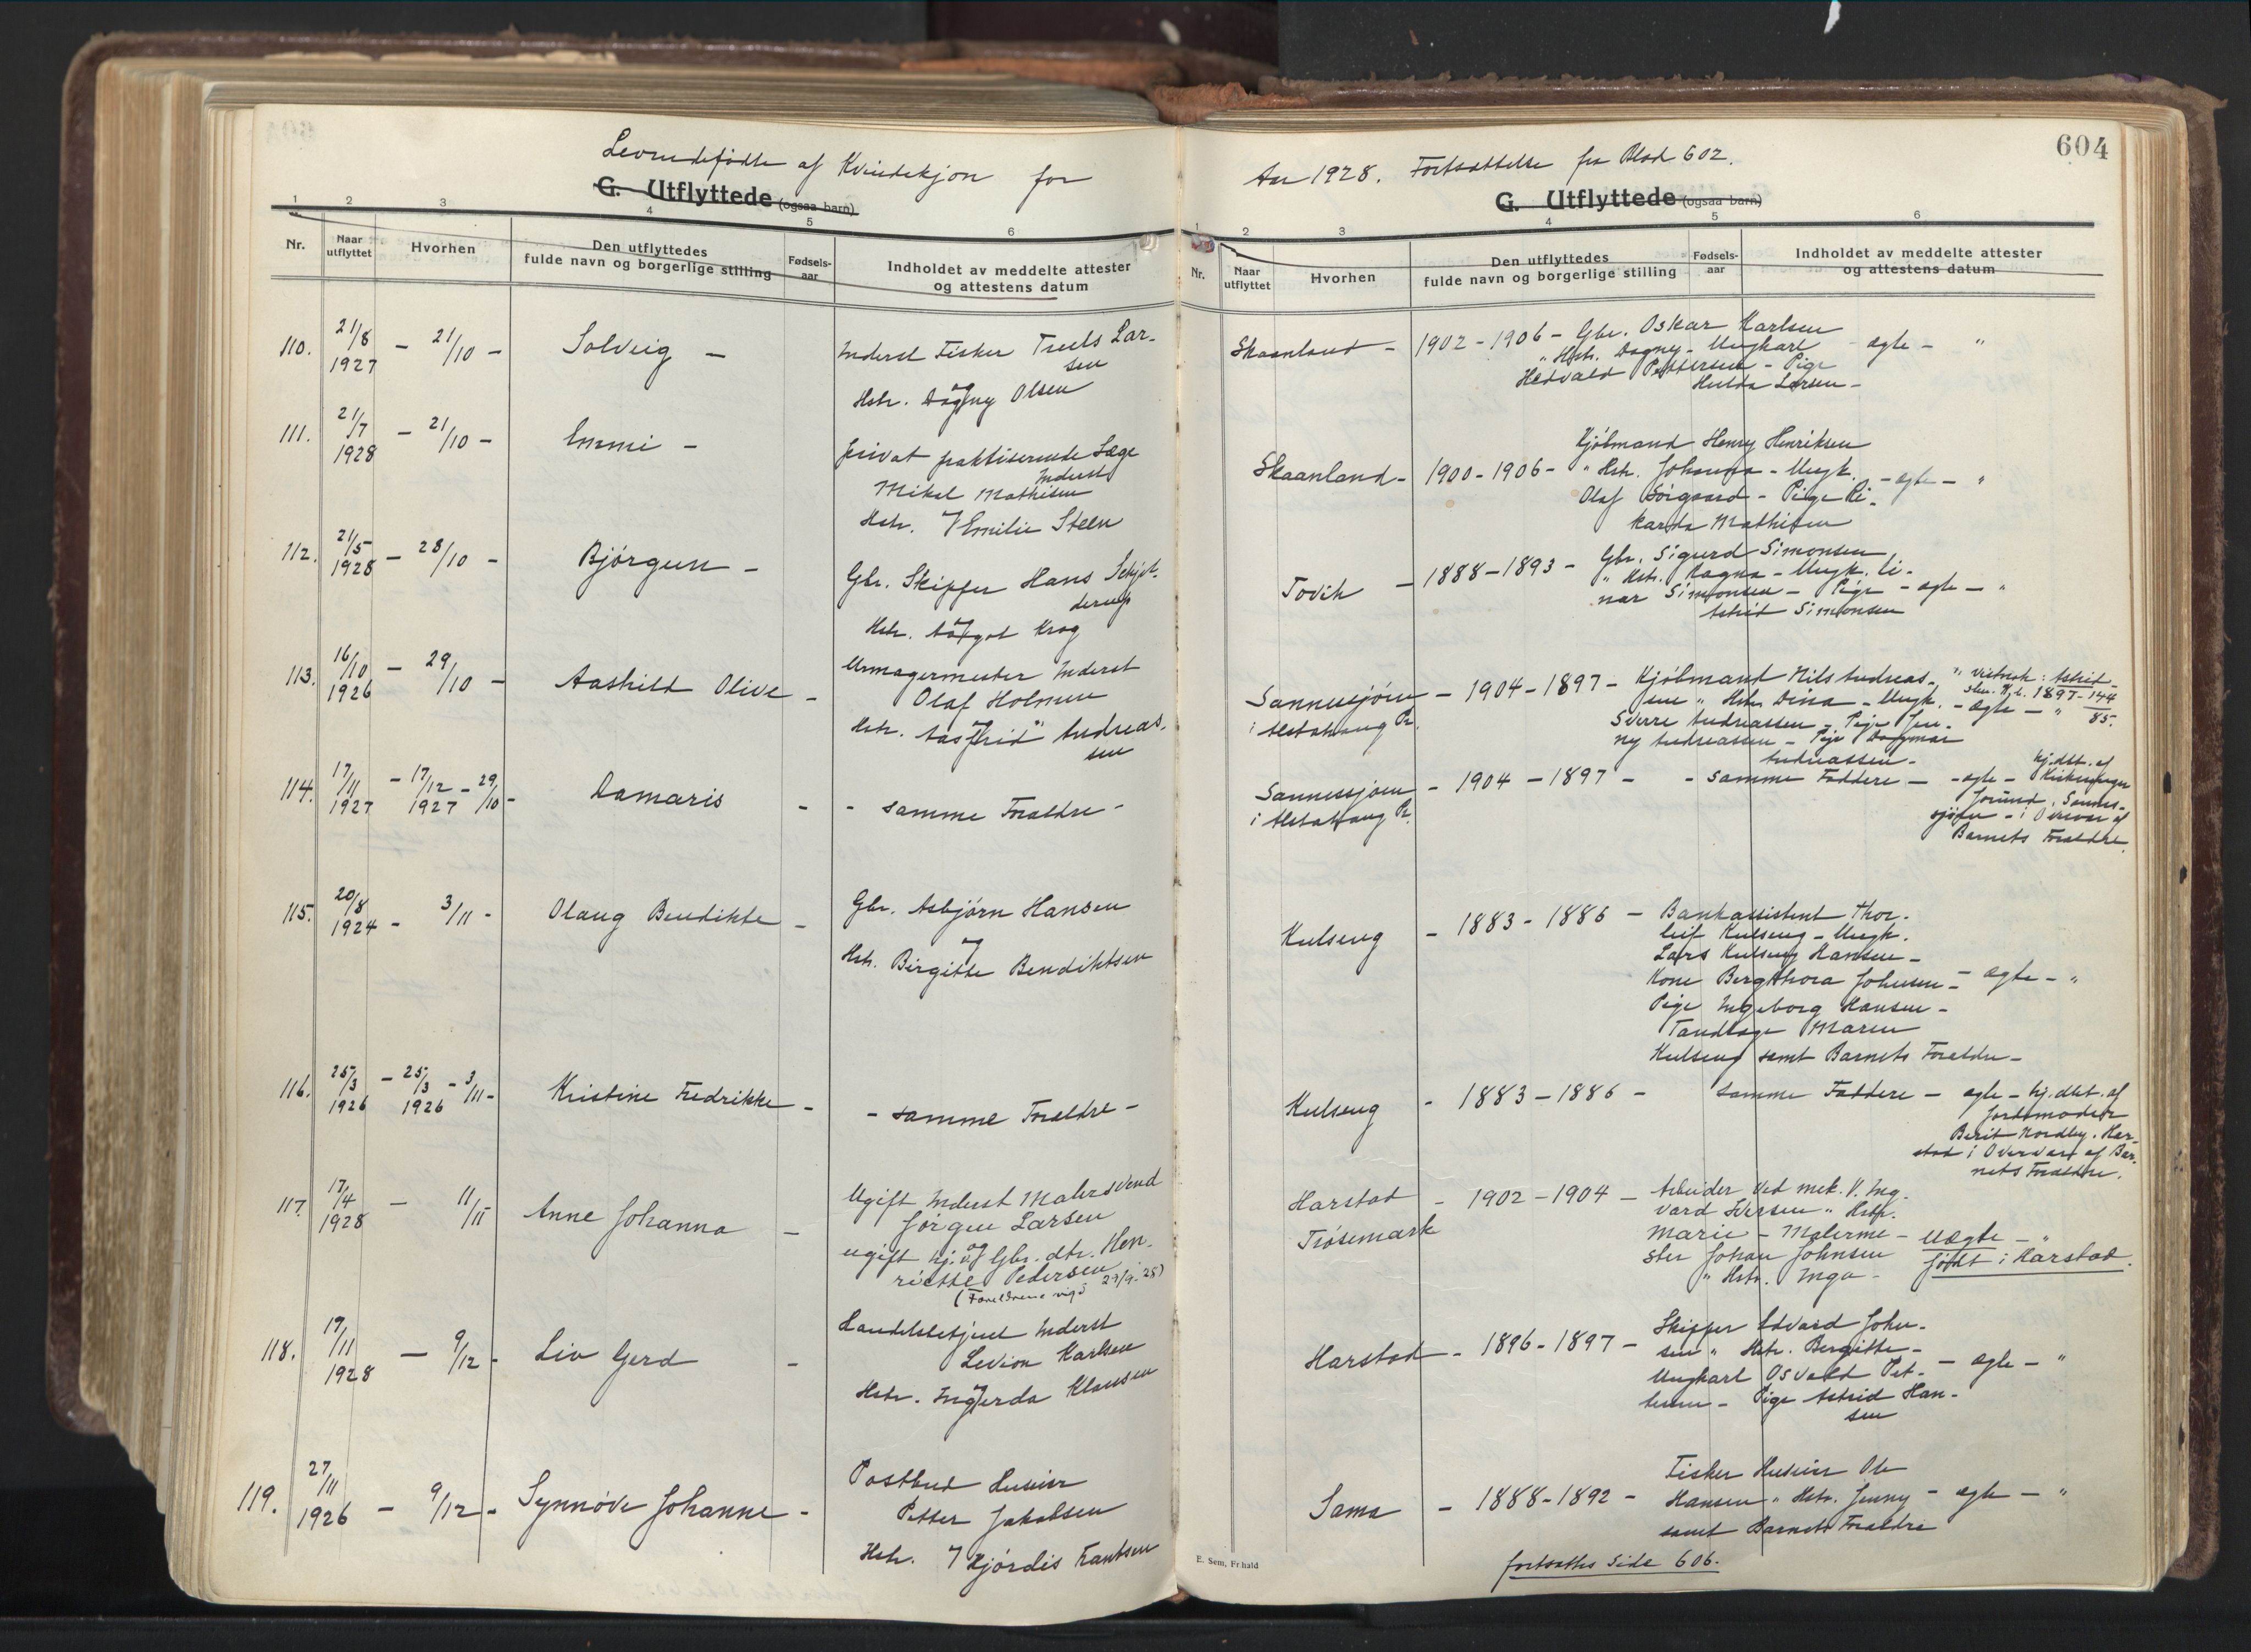 Levendefødte af Kvindekjøn for
G. Utflyttede (ogsaa barn)
1 2 3 4 5 6
Nr.
Naar utflyttet
Hvorhen
Den utflyttedes fulde navn og borgerlige stilling
Fødsels-aar
Indholdet av meddelte attester og attestens datum
110. 21/8 1927 - 21/10 - Solveig -
Inderst Fisker Truls Lar-
sen
og
Hstr. Dagny Olsen
111. 21/7 1928 - 21/10 - Emmi -
privat praktiserende Læge
Inderst
Mikal Mathisen
Hstr. Emilie Steen
112. 21/5 1928 - 28/10 - Bjørgun -
Gbr. Skipper Hans Schjel-
derup
Hstr. Aagot Krog
113. 16/10 1926 - 29/10 - Aashild Olive -
Urmagermester Inderst
Olaf Holmen
Hstr. Aasfrid Andreas-
sen
114. 17/11 1927 - 17/12 1927 - 29/10 - Damaris -
- samme Foreldre -
115. 20/8 1924 - 3/11 - Olaug Bendikte -
Gbr. Asbjørn Hansen
og
Hstr. Birgitte Bendiktsen
116. 25/3 1926 - 25/3 1926 - 3/11 - Kristine Fredrikke -
- samme Foreldre -
117. 17/4 1928 - 11/11 Anne Johanna -
Ugift Inderst Malersvend
Jørgen Larsen
og
ugift hj. af Gbr. dtr. Hen-
riette Pedersen
(Foreldrene vigd 29/9-28)
118. 19/11 1928 - 9/12 - Liv Gerd -
Handelsbetjent Inderst
Levion Karlsen
Hstr. Ingerda Klausen
119. 27/11 1926 - 9/12 - Synnøve Johanne -
Postbud Huseier
Petter Jakobsen
Hstr. Hjørdis Frantsen
604
Aar 1928. Fortsættelse fra Blad 602.
G. Utflyttede (ogsaa barn)
1 2 3 4 5 6
Nr.
Naar utflyttet
Hvorhen
Den utflyttedes fulde navn og borgerlige stilling
Fødsels-aar
Indholdet av meddelte attester og attestens datum
Skaanland - 1902 - 1906 - Gbr. Oskar Karlsen
" Hstr. Dagny - Ungkarl - ægte - "
Hedvald Pettersen - Pige
Hulda Larsen -
Kjøbmand Henry Henriksen
Skaanland - 1900 - 1906 - " Hstr. Johanna - Ungk. - ægte - "
Olaf Sørgaard - Pige Ri-
karda Mathisen
Gbr. Sigurd Simonsen
Tovik - 1888 - 1893 - " Hstr. Ragna - Ungk. Ei-
nar Simonsen - Pige - ægte - "
Astrid Simonsen
Sannessjøen i Alstahaug Pr. - 1904 - 1897 - Kjøbmand Nils Andreas-
sen " Hstr. Dina - Ungk. - ægte - "
Sverre Andreassen - Pige Jen-
ny Andreassen - Pige Dagmar
Andreassen -
1897-144
85.
Sannessjøen i Alstahaug Pr. - 1904 - 1897 - - samme Faddere - - ægte - hj.dbt. af
Sannes-
sjøen - i Overvær af
Barnets Foreldre.
Kulseng - 1883 - 1886 - Bankassistent Thor-
leif Kulseng - Ungk.
Lars Kulseng Hansen -
Kone Bergthora Johnsen - ægte - "
Pige Ingeborg Hansen -
Tandlæge Maren
Kulseng samt Barnets Foreldre -
Kulseng - 1883 - 1886 - samme Faddere - ægte - hj.dbt. af
Jordemoder
Berit Nordby, Har-
stad i Overvær af Bar-
nets Foreldre.
Harstad Trøsemark - 1902 - 1904 - Arbeider ved mek. V. Ing-
vard Iversen " Hstr.
Marie - Malerme - uægte - "
ster Johan Johnsen født i Harstad.
" Hstr. Inga -
Harstad - 1896 - 1897 - Skipper Edvard John-
sen " Hstr. Bergitte -
Ungkarl Osvald Pet- - ægte - "
tersen - Pige Astrid Han-
sen
Sama - 1888 - 1892 - Fisker Huseier Ole
Hansen " Hstr. Jenny - ægte - "
samt Barnets Foreldre
fortsættes Side 606.
E. Sem, Fr.hald